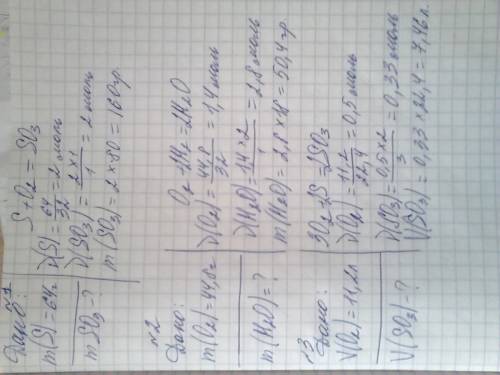 Дано: №1
m(S) = 64г
mSO₃ - ?
S + O₂ = SO₃
ν(S) = 64/32 = 2 моль
ν(SO₃) = 2×1/1 = 2 моль
m(SO₃) = 2×80 = 160гр.
№2
Дано:
m(O₂) = 44,8г
m(H₂O) = ?
O₂ + 2H₂ = 2H₂O
ν(O₂) = 44,8/32 = 1,4 моль
ν(H₂O) = 1,4×2/1 = 2,8 моль
m(H₂O) = 2,8×18 = 50,4гр
№3
Дано:
V(O₂) = 11,2л
V(SO₃) - ?
3O₂ + 2S = 2SO₃
ν(O₂) = 11,2/22,4 = 0,5 моль
ν(SO₃) = 0,5×2/3 = 0,33 моль
V(SO₃) = 0,33×22,4 = 7,46л.